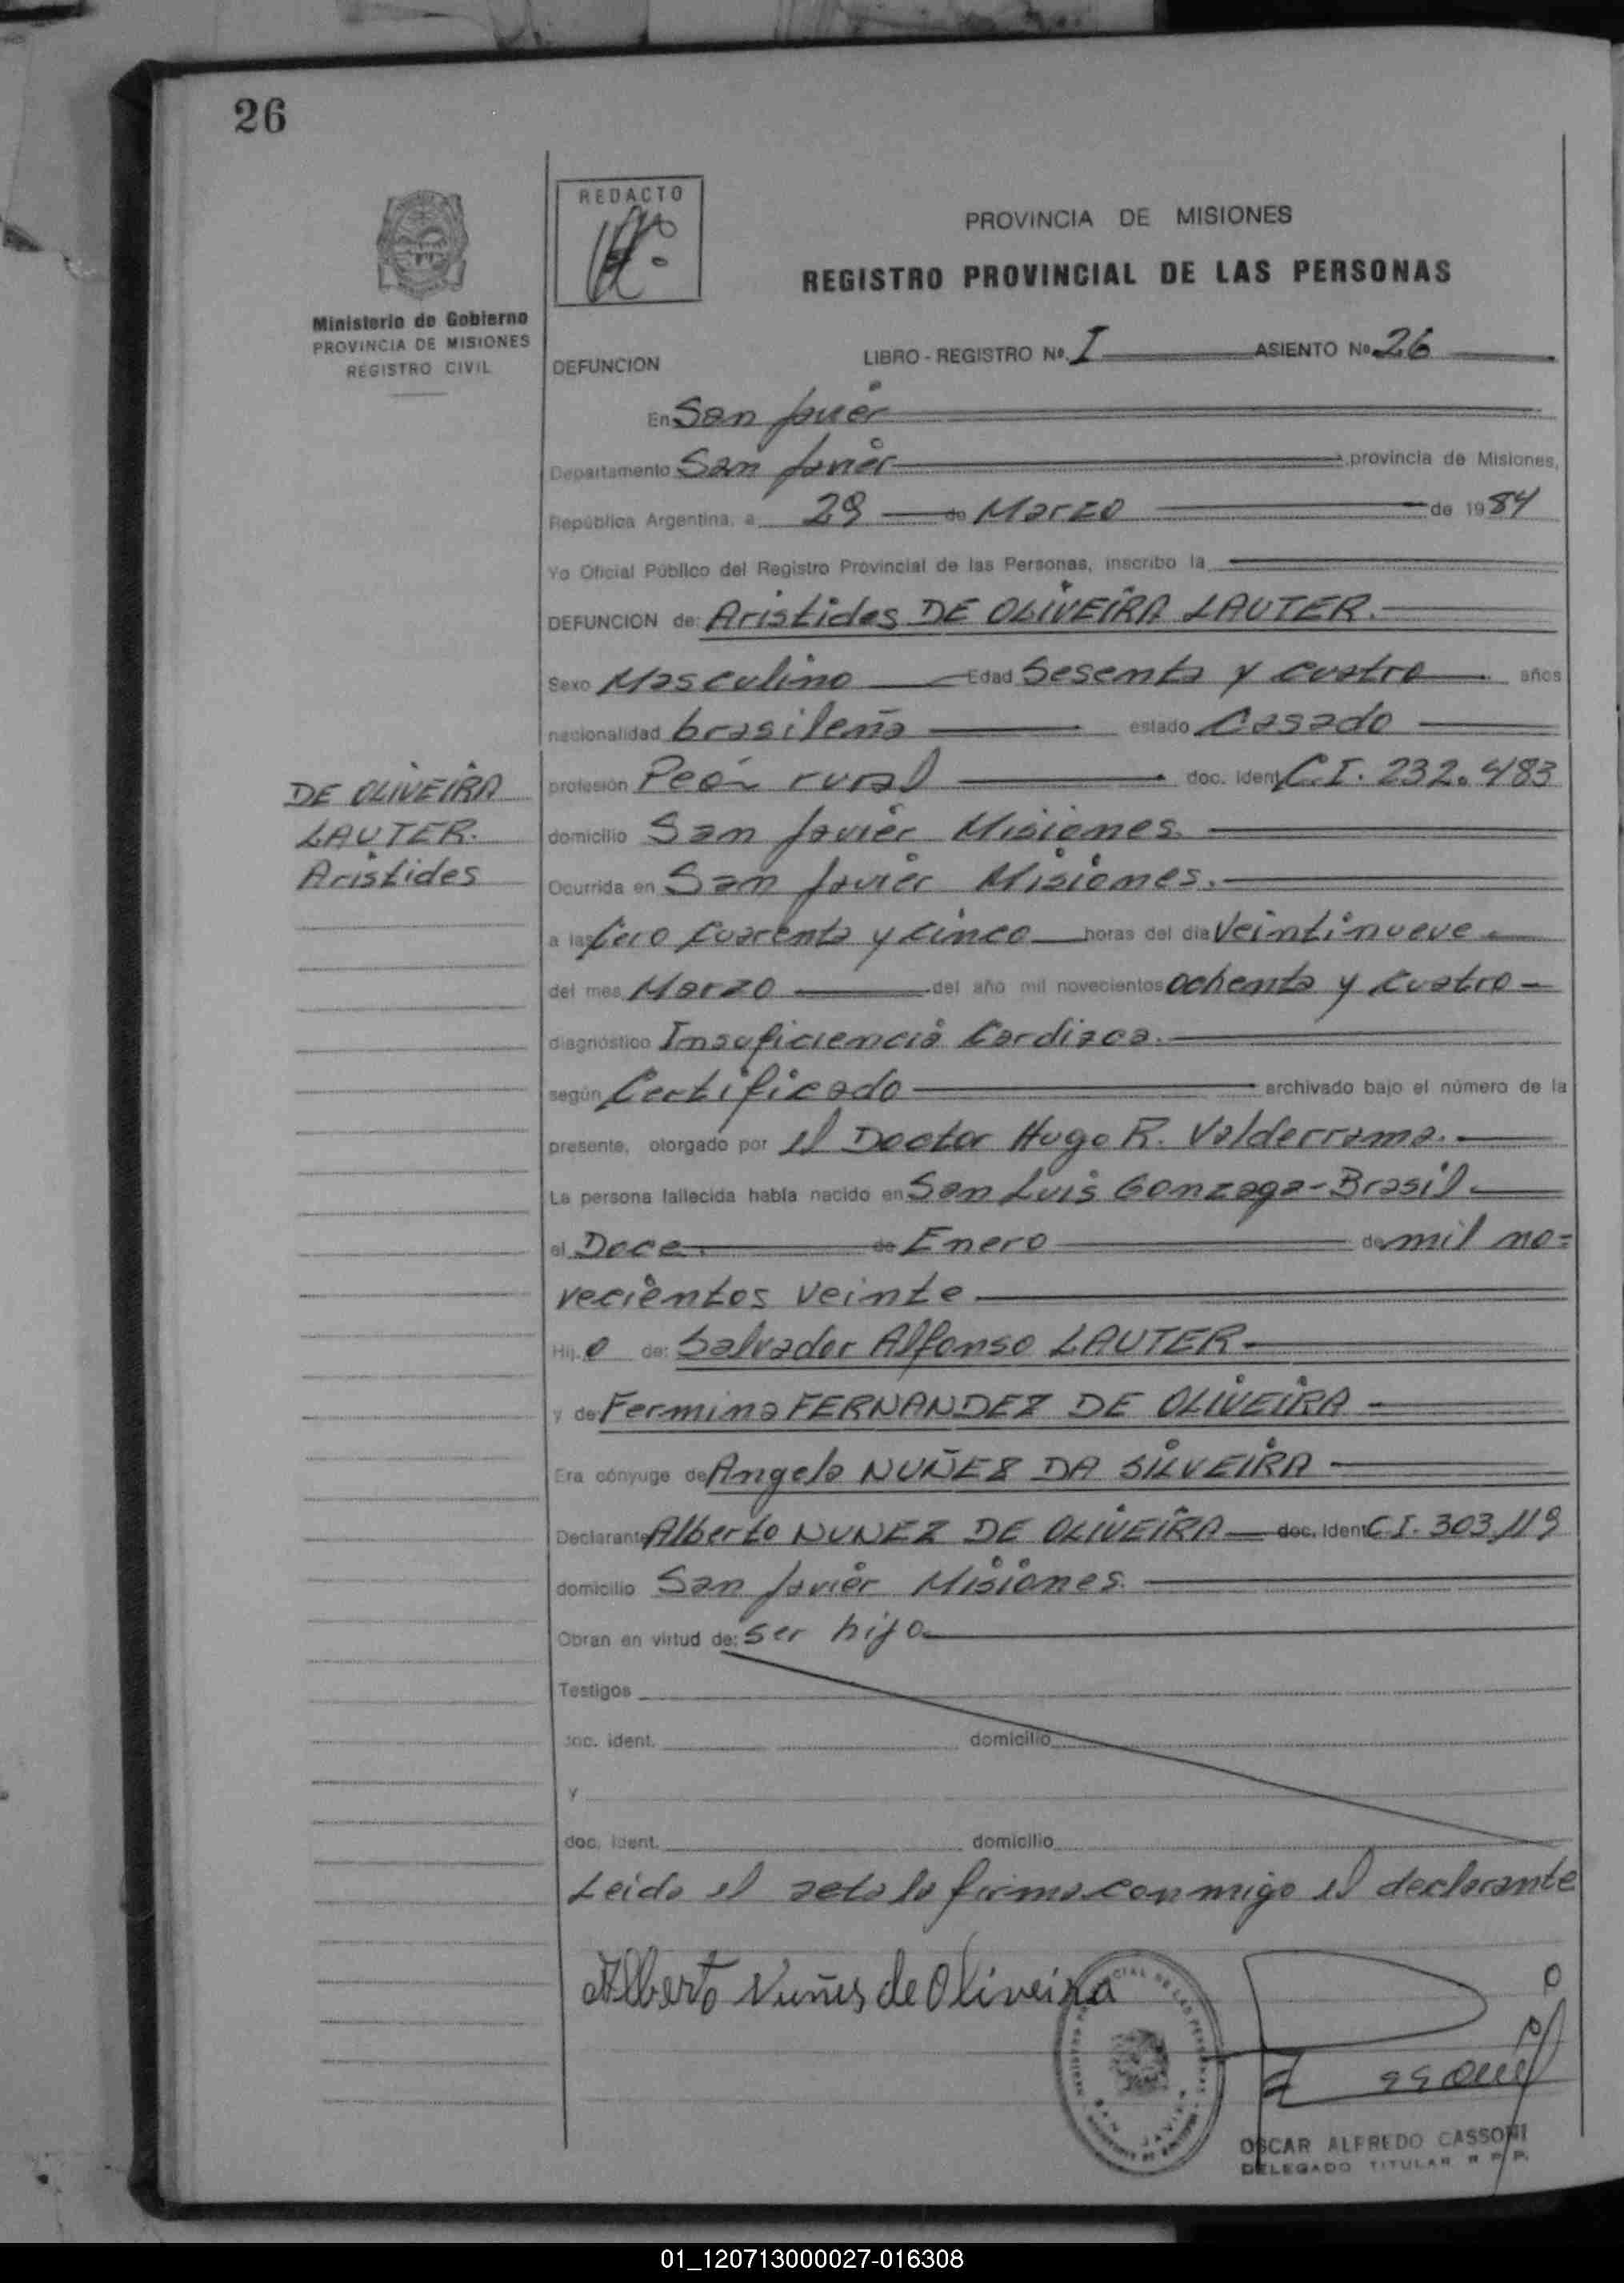 26
REDACTO
PROVINCIA DE MISIONES
REGISTRO PROVINCIAL DE LAS PERSONAS
Ministerio de Gobierno
PROVINCIA DE MISIONES
REGISTRO CIVIL
DEFUNCION LIBRO - REGISTRO Nº. I ASIENTO Nº 26
En San Javier
Departamento San Javier provincia de Misiones,
República Argentina, a 29 de Marzo de 1984
Yo Oficial Público del Registro Provincial de las Personas, inscribo la
DEFUNCION de: Aristides DE OLIVEIRA LAUTER.
Sexo Masculino Edad Sesenta y cuatro años
nacionalidad brasileña estado Casado
DE OLIVEIRA
LAUTER.
Aristides
profesión Peón rural doc. Ident C.I. 232.483
domicilio San Javier Misiones.
Ocurrida en San Javier Misiones.
a las Cero Cuarenta y Cinco horas del día Veintinueve
del mes Marzo del año mil novecientos ochenta y cuatro
diagnóstico Insuficiencia Cardiaca.
según Certificado archivado bajo el número de la
presente, otorgado por el Doctor Hugo R. Valderrama.
La persona fallecida había nacido en San Luis Gonzaga-Brasil.
el Doce. de Enero de mil no=
vecientos veinte
Hij o de: Salvador Alfonso LAUTER
y de: Fermina FERNANDEZ DE OLIVEIRA
Era cónyuge de Angela NUÑEZ DA SILVEIRA
Declarante Alberto NUNEZ DE OLIVEIRA doc. Ident C.I. 303,119
domicilio San Javier Misiones.
Obran en virtud de: Ser hijo
Testigos
doc. ident. domicilio
y
doc. ident. domicilio
Leida el acta la firma conmigo el declarante
Alberto Nuñes de Oliveira
OSCAR ALFREDO CASSONI
DELEGADO TITULAR R. P. P.
01_120713000027-016308